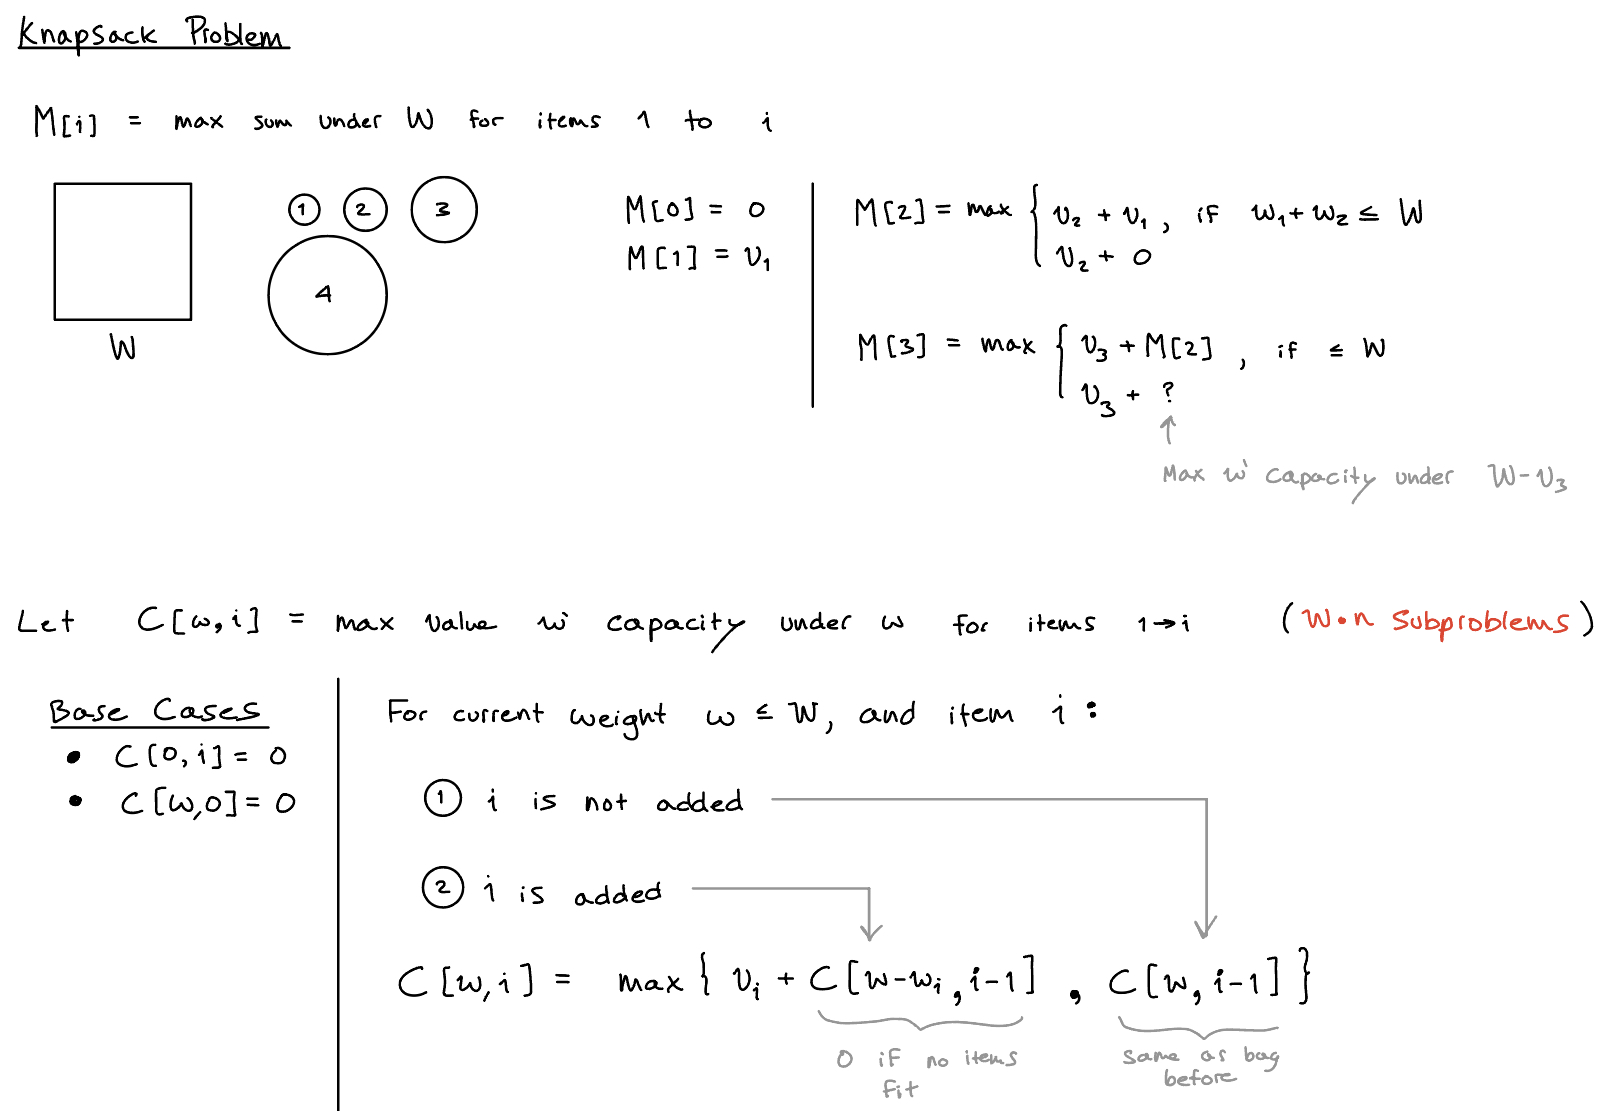 Knapsack Problem
M[i] = max sum under W for items 1 to i
1 2 3
4
W
M[0] = 0
M[1] = v₁
M[2] = max { v₂ + v₁ , if w₁ + w₂ ≤ W
v₂ + 0
M[3] = max { v₃ + M[2] , if ≤ W
v₃ + ?
Max w/ capacity under W-v₃
Let C[w,i] = max value w/ capacity under w for items 1→i (W•n subproblems)
Base Cases
• C[0,i] = 0
• C[w,0] = 0
For current weight w ≤ W, and item i :
① i is not added
② i is added
C[w,i] = max{ vᵢ + C[w-wᵢ,i-1] , C[w,i-1] }
0 if no items
fit
same as bag
before